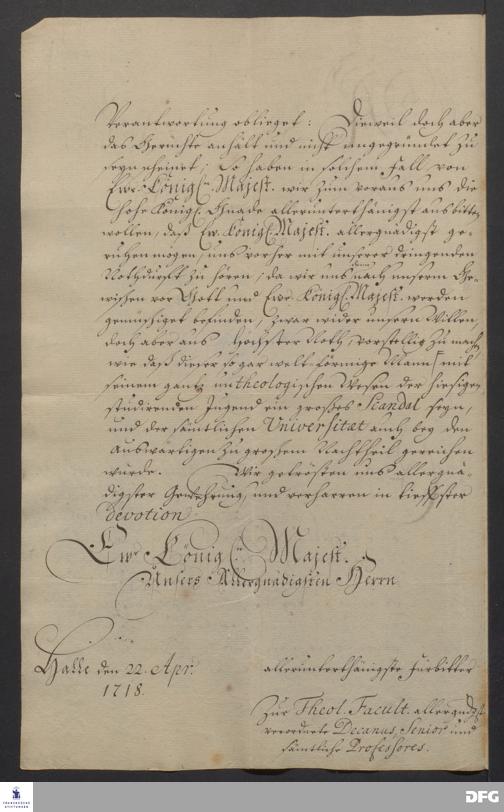 Verantwortung oblieget: Dieweil doch aber
das Gerücht anhält und nicht ungegründet zu
seyn scheinet; So haben in solchem Fall von
Ew. Königl. Majest. wir zum voraus uns die
hohe Königl. Gnade allerunterthänigst ausbitten
wollen, daß Ew. Königl. Majest. allergnädigst ge-
ruhen mögen, uns vorher mit unserer dringenden
Nothdurft zu hören, da wir uns nach unserm Ge-
wissen vor Gott und Ew. Königl. Majest. werden
gemüssiget befinden, zwar wider unsern Willen,
doch aber aus höchster Noth, vorstellig zu machen
wie daß dieser so gar welt-förmige Mann mit
seinem gantz untheologischen Wesen der hiesigen
studirenden Jugend ein großes Scandal seyn,
und der sämtlichen Universitæt auch bey den
Auswärtigen zu großem Nachtheil gereichen
würde. Wir getrösten uns allergnä-
digster Gewehrung, und verharren in tieffster
Devotion
Ew. Königl. Majest.
Unsers Allergnädigsten Herrn
Halle den 22. Apr.
1718.
allerunterthänigste Fürbitter
Zur Theol. Facult. allergnädigst
verordnete Decanus, Senior und
sämtliche Professores.
FRANCKESCHE STIFTUNGEN
DFG